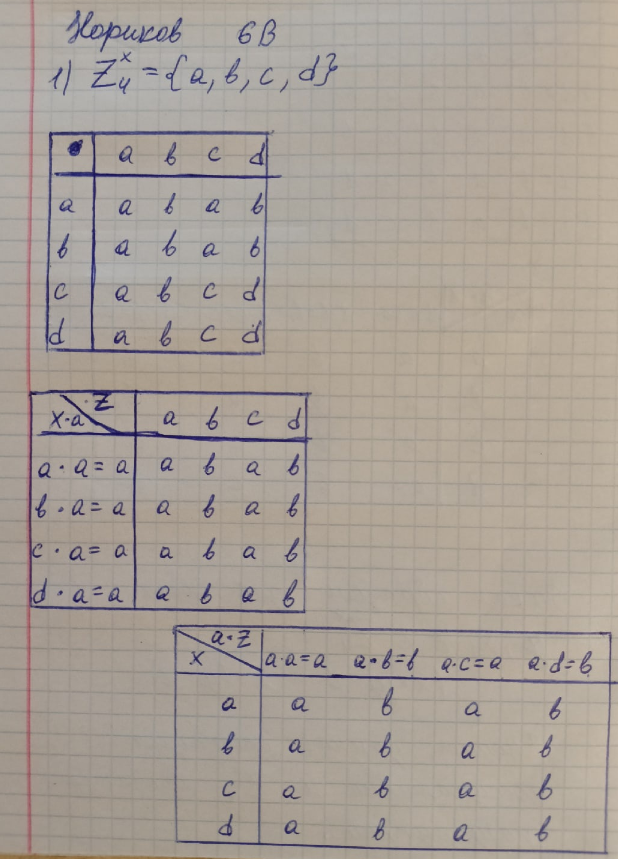 Нориков 6В
1) Z₄ˣ = {a, b, c, d}
• a b c d
a a b a b
b a b a b
c a b c d
d a b c d
x·a ·Z a b c d
a·a=a a b a b
b·a=a a b a b
c·a=a a b a b
d·a=a a b a b
x a·Z a·a=a a·b=b a·c=a a·d=b
a a b a b
b a b a b
c a b a b
d a b a b